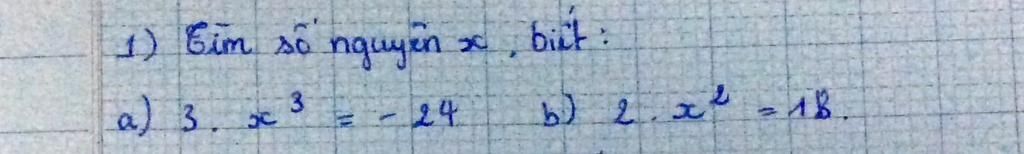 1) Tìm số nguyên x, biết:
a) 3. x³ = - 24 b) 2. x² = 18.